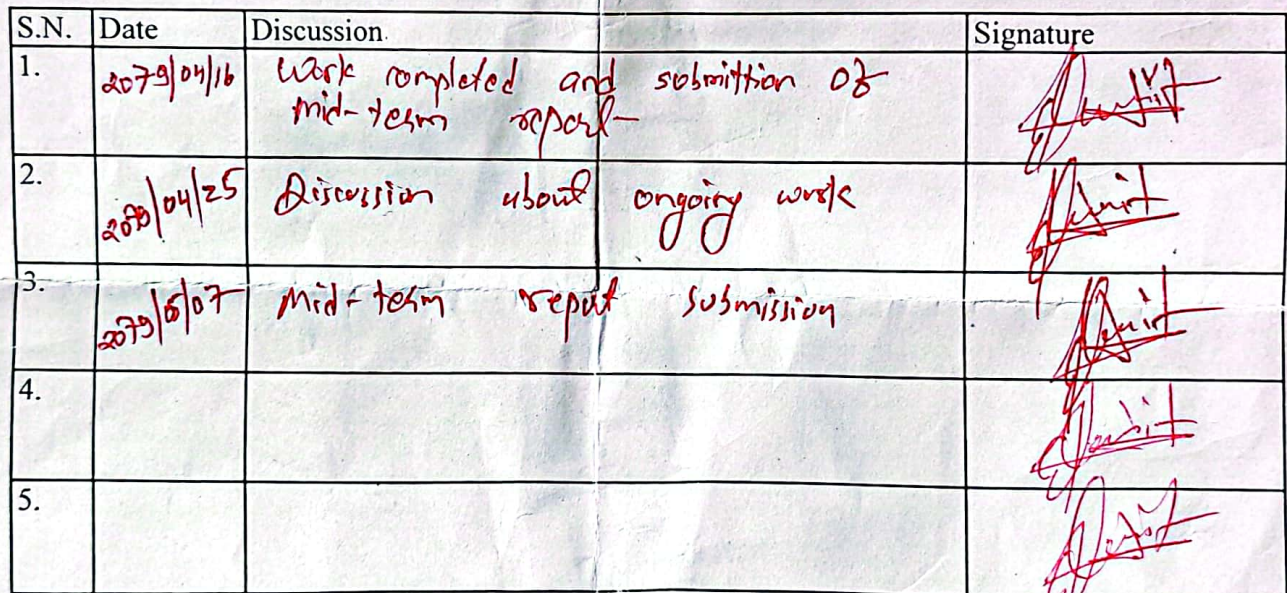 S.N. Date Discussion Signature
1. 2079/04/16 Work completed and submittion of
mid-term report
2. 2080/04/25 Discussion about ongoing work
3. 2079/05/07 Mid-term report submission
4.
5.